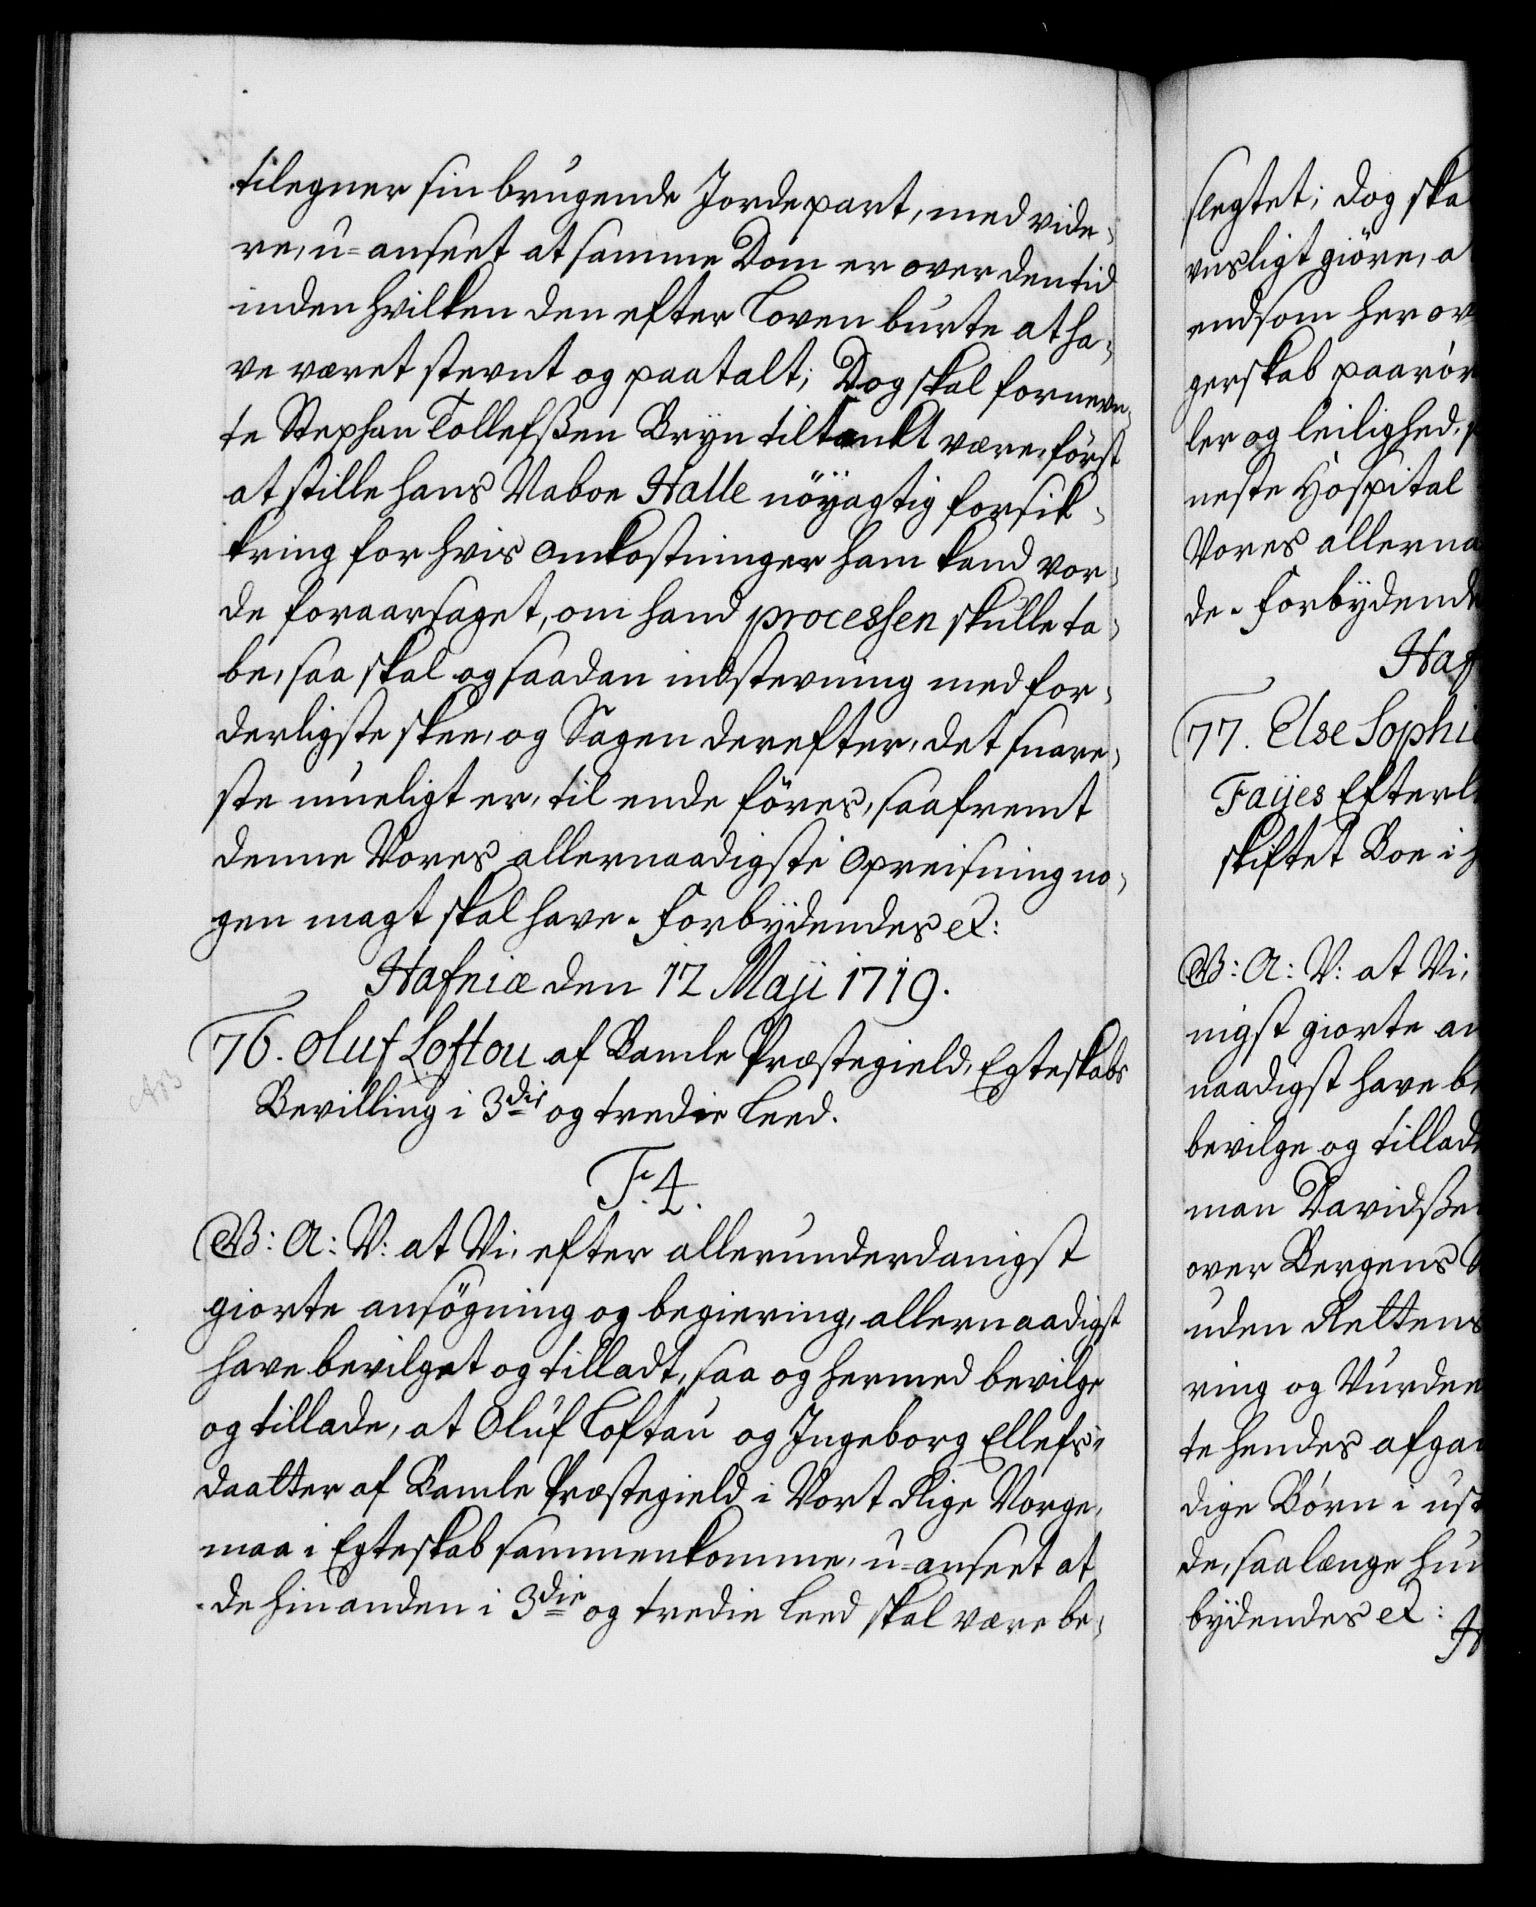 tilegner sin brugende Jordepart, med vide-
re, u-anseet at samme Dom er over den tid
inden hvilken den efter Loven burte at ha-
ve været stevnt og paatalt; Dog skal fornevn-
te Stephan Tollefßen Bryn tiltenkt være, først
at stille hans Naboe Halle nöyagtig forsik-
kring for hvis omkostninger ham kand vor-
de foraarsaget, om hand processen skulle ta-
be, saa skal og saadan indstevning med for-
derligste skee, og Sagen derefter, det snare-
ste mueligt er, til ende föres, saafremt
denne Vores allernaadigste opreisning no-
gen magt skal have. Forbydendes etc:
Hafniæ den 12 Maji 1719.
76. Oluf Loftou af Bamle Præstegield, Egteskabs
Bevilling i 3die og tredie Leed.
F. 4.
G: A: V: at Vi, efter allerunderdanigst
giorte ansögning og begiering, allernaadigst
have bevilget og tilladt, saa og hermed bevilge
og tillade, at Oluf Loftau og Ingeborg Ellefs-
daatter af Bamle Præstegield i Vort Rige Norge,
maa i Egteskab sammenkomme, u-anseet at
de hinanden i 3die og tredie Leed skal være be-
slegtet; dog ska
vusligt giöre, a
endsom her ov
gerskab paarör
ler og leilighed,
neste Hospital
Vores allerna
de. Forbydend
Haf
77. Else Sophi
Faijes Efterl
skiftet Boe i
G: A: V: at Vi,
nigst giorte an
naadigst have be
bevilge og tillad
man Davidße
over Bergens
uden Rettens
ring og Vurder
te hendes afga
dige Börn i usk
de, saalænge hun
bydendes etc: